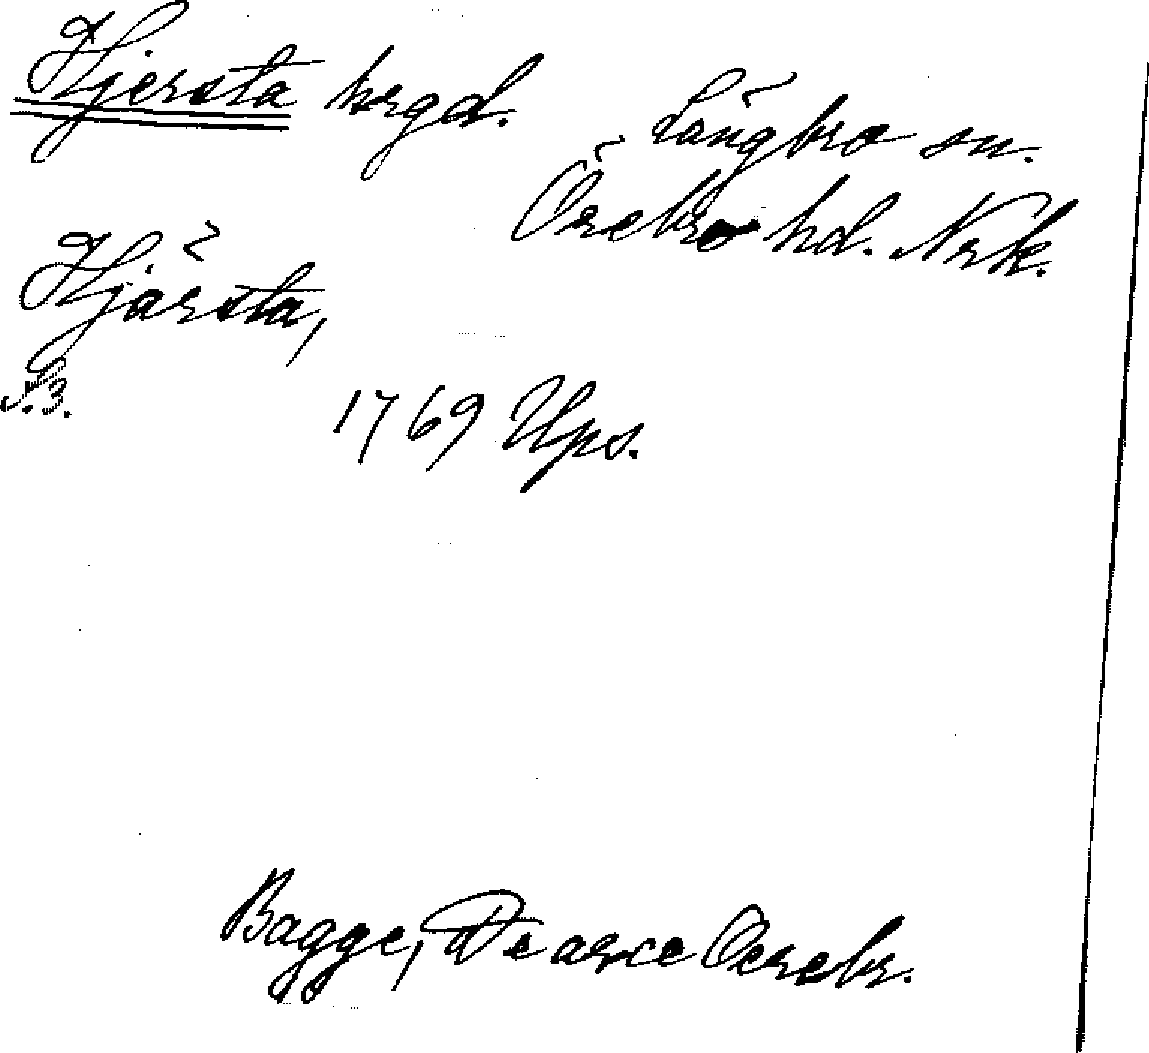 Hjersta hrgd.
Långbro sn.
Örebro hd. Nrk.
Hjärsta,
S. 3.
1769 Ups.
Bagge, De arce Oerebr.